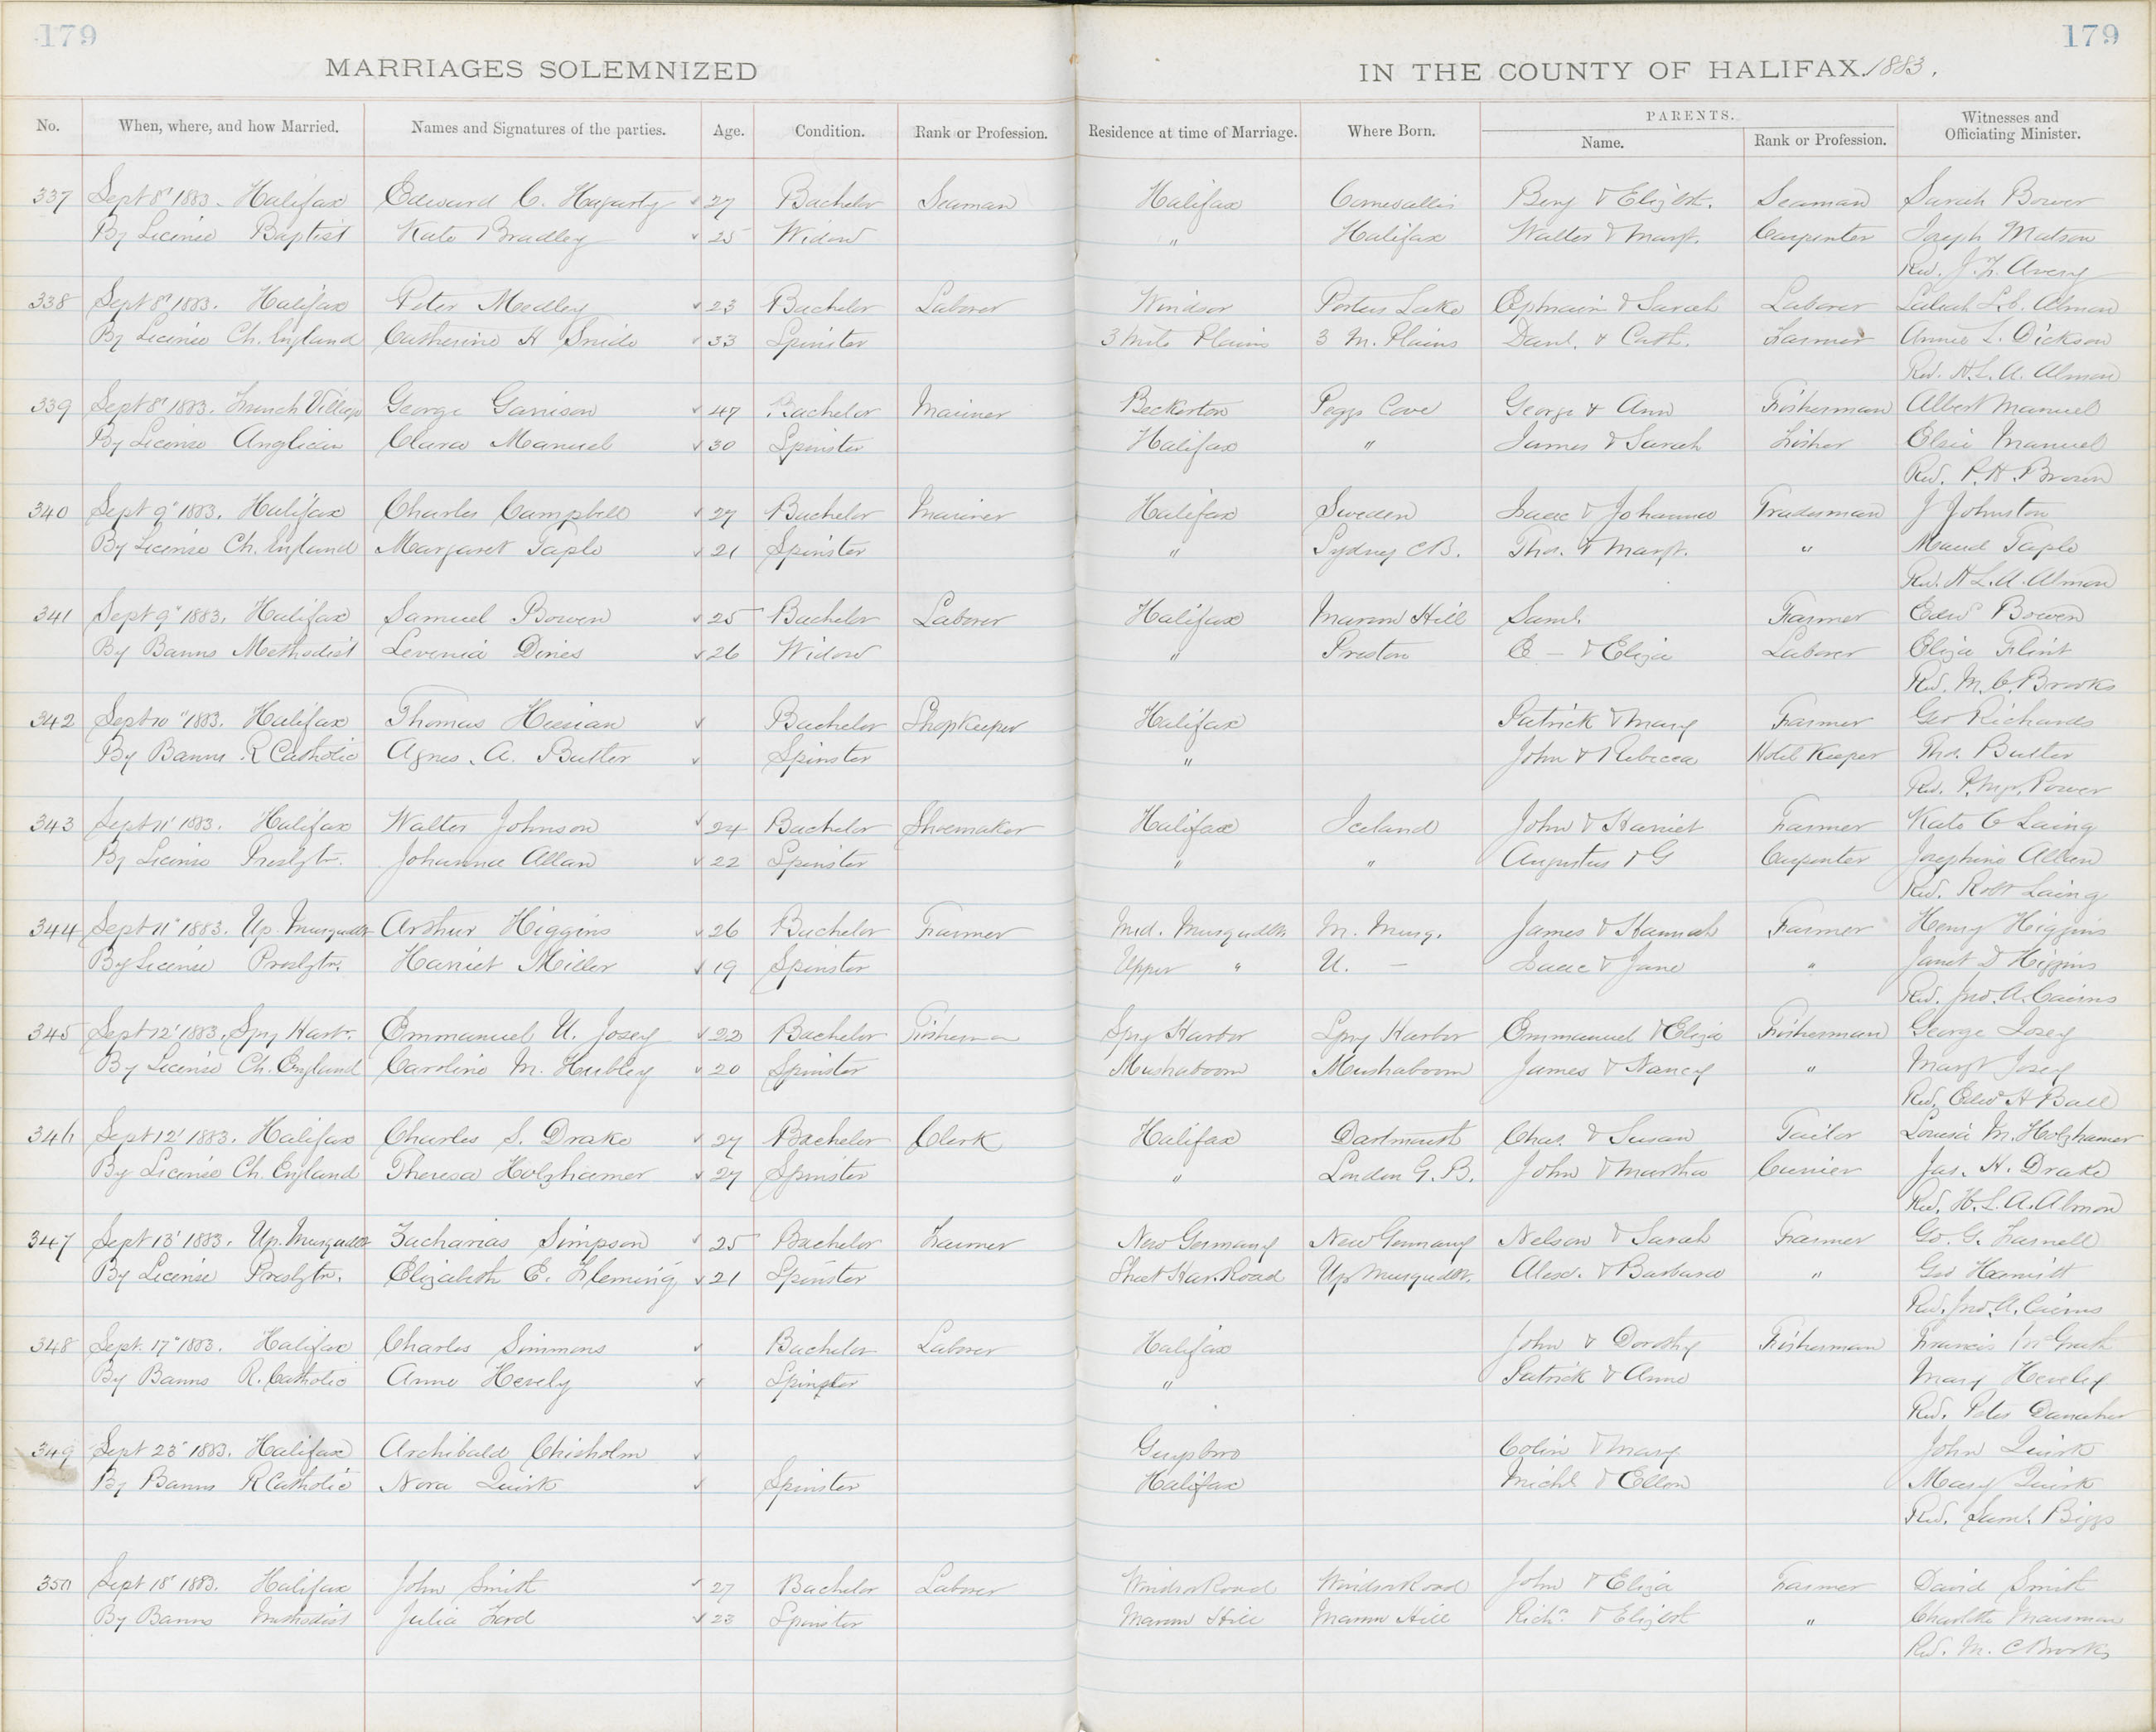 179
179
MARRIAGES SOLEMNIZED IN THE COUNTY OF HALIFAX. 1883.
No. When, where, and how Married. Names and Signatures of the parties. Age. Condition. Rank or Profession. Residence at time of Marriage. Where Born. PARENTS. Name. Rank or Profession. Witnesses and Officiating Minister.
337 Sept 8" 1883. Halifax Edward C. Hagarty 27 Bachelor Seaman Halifax Cornwallis Benj & Elizbt. Seaman Sarah Bower
By License Baptist Kate Bradley 25 Widow " Halifax Walter & Margt. Carpenter Joseph Matson
Rev. J. F. Avery
338 Sept 8" 1883. Halifax Peter Medley 23 Bachelor Laborer Windsor Porters Lake Ephraim & Sarah Laborer Almon
By License Ch. England Catherine H Snide 33 Spinster 3 Mile Plains 3 M. Plains Danl. & Cath. Farmer Annie L. Dickson
Rev. H. L. A. Almon
339 Sept 8" 1883. French Village George Garrison 47 Bachelor Mariner Beckerton Peggs Cove George & Ann Fisherman Albert Manuel
By License Anglican Clara Manuel 30 Spinster Halifax " James & Sarah Fisher Elsie Manuel
Rev. P. H. Brown
340 Sept 9" 1883. Halifax Charles Campbell 27 Bachelor Mariner Halifax Sweden Isaac & Johanna Tradesman J Johnston
By License Ch. England Margaret Taplo 21 Spinster " Sydney C.B. Thos. & Margt. " Maud Taplo
Rev. H L. A. Almon
341 Sept 9" 1883. Halifax Samuel Bowen 25 Bachelor Laborer Halifax Maroon Hill Saml. Farmer Edwd Bowen
By Banns Methodist Levenia Dines 26 Widow " Preston C — & Eliza Laborer Eliza Flint
Rev. M. C. Brooks
342 Sept 10" 1883. Halifax Thomas Bachelor Shopkeeper Halifax Patrick & Mary Farmer Geo Richards
By Banns R Catholic Agnes. A. Butler Spinster " John & Rebecca Hotel Keeper Thos. Butler
Rev. P. Power
343 Sept 11' 1883. Halifax Walter Johnson 24 Bachelor Shoemaker Halifax Iceland John & Harriet Farmer Kate C Laing
By License Presbytn. Johanna Allan 22 Spinster " " Augustus & G Carpenter Josephine Allan
Rev. Robt Laing
344 Sept 11" 1883. Up. Musquodt Arthur Higgins 26 Bachelor Farmer Mid. Musquodt. M. Musq. James & Hannah Farmer Henry Higgins
By License Presbytn. Harriet Miller 19 Spinster Upper " U. — Isaac & Jane " Janet D Higgins
Rev. Jno. A. Cairns
345 Sept 12' 1883. Spry Harbr. Emmanuel U. Josey 22 Bachelor Fisherman Spry Harbor Spry Harbor Emmanuel & Eliza Fisherman George Josey
By License Ch. England Caroline M. Hubley 20 Spinster Mushaboom Mushaboom James & Nancy " Margt Josey
Rev. Edwd H Ball
346 Sept 12' 1883. Halifax Charles S. Drake 27 Bachelor Clerk Halifax Dartmouth Chas. & Susan Tailor Louisa M. Holzhamer
By License Ch. England Theresa Holzhamer 27 Spinster " London G. B. John & Martha Currier Jas. H. Drake
Rev. H. L. A. Almon
347 Sept 13' 1883. Up. Musquodt Zacharias Simpson 25 Bachelor Farmer New Germany New Germany Nelson & Sarah Farmer Geo. G. Farnell
By License Presbytn. Elizabeth E. Fleming 21 Spinster Sheet Har. Road Up Musquodt. Alexr. & Barbara " Geo
Rev. Jno. A. Cairns
348 Sept. 17" 1883. Halifax Charles Simmons Bachelor Laborer Halifax John & Dorothy Fisherman Francis McGrath
By Banns R. Catholic Anne Hevely Spinster " Patrick & Anne Mary Heveley
Rev. Peter Danaher
349 Sept 23" 1883. Halifax Archibald Chisholm Guysboro Colin & Mary John Quirk
By Banns R Catholic Nora Quirk Spinster Halifax Michl & Ellen Mary Quirk
Rev. Saml. Biggs
350 Sept 18" 1883. Halifax John Smith 27 Bachelor Laborer Windsor Road Windsor Road John & Eliza Farmer David Smith
By Banns Methodist Julia Ford 23 Spinster Maroon Hill Maroon Hill Richd. & Elizbt " Charlotte
Rev. M. C Brooks